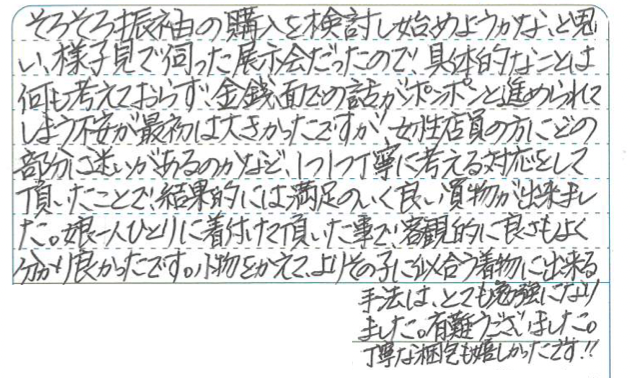 そろそろ振袖の購入を検討し始めようかな、と思
い、様子見で伺った展示会だったので、具体的なことは
何も考えておらず、金銭面での話がポンポンと進められて
しまう不安が最初は大きかったですが、女性店員の方にどの
部分に迷いがあるのかなど、1つ1つ丁寧に考える対応をして
頂いたことで、結果的には満足のいく良い買物が出来まし
た。娘一人ひとりに着付けて頂いた事で、客観的に良さもよく
分かり良かったです。小物をかえて、よりその子に似合う着物に出来る
手法は、とても勉強になり
ました。有難うございました。
丁寧な梱包も嬉しかったです!!